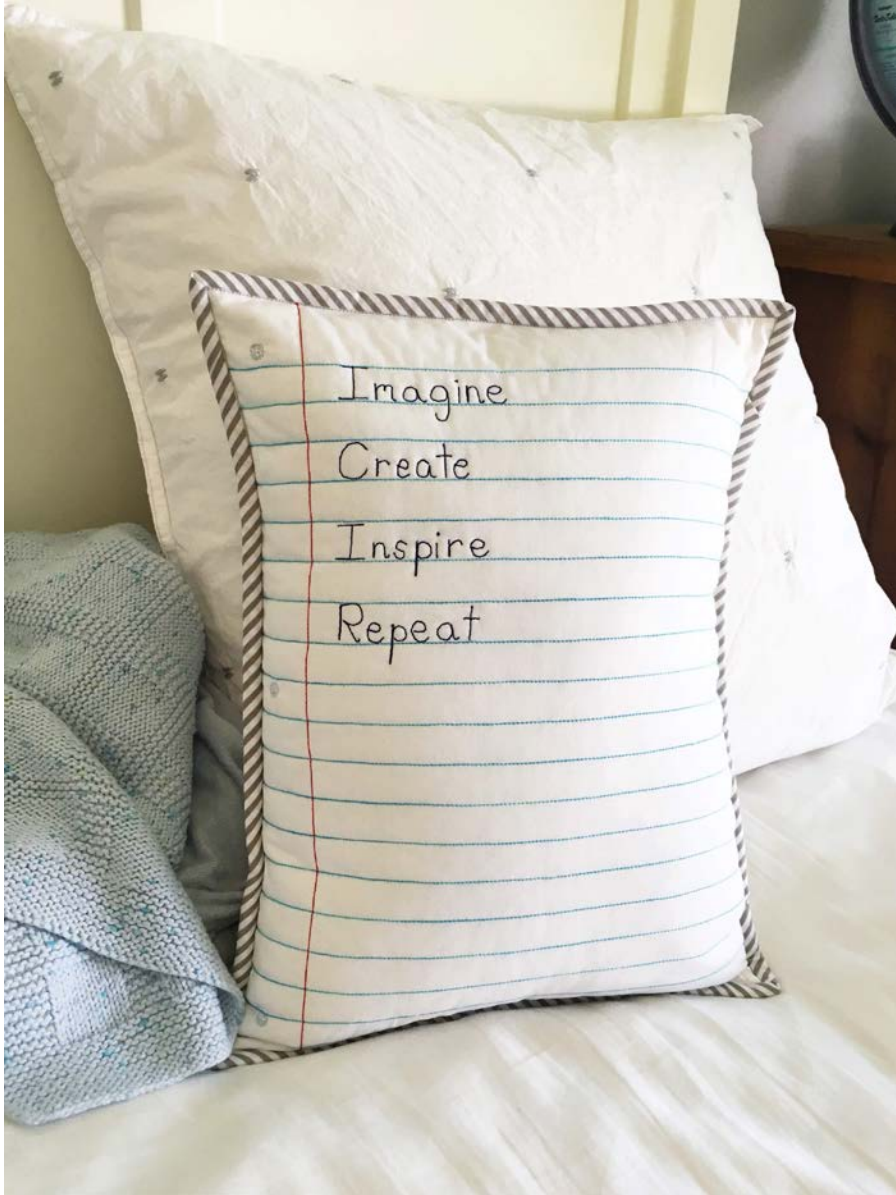 Imagine
Create
Inspire
Repeat